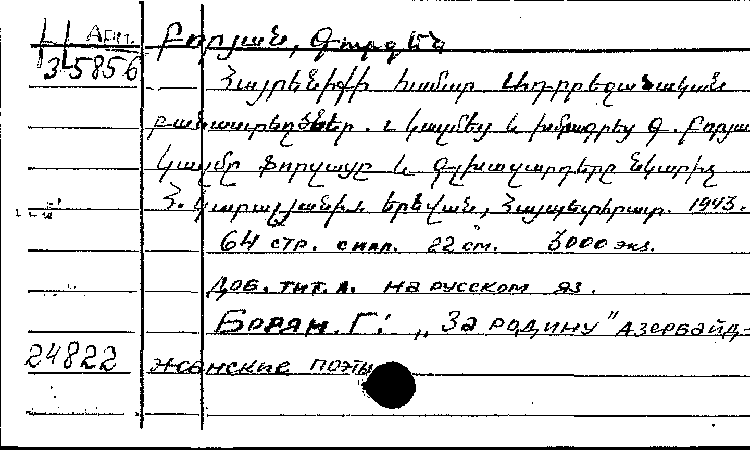 Арм.
35856
Բորյան, Գուրգեն
Հայրենիքի համար Ադրբեջանական
բանաստեղծներ. Կազմեց և խմբագրեց Գ. Բորյա
Կազմը ֆորզացը և գլխազարդերը նկարիչ
Հ. Կարալյանի. Երևան, Հայպետհրատ. 1943.
64 стр. с илл. 22 см. 3000 экз.
Доб. тит. л. на русском яз.
Борян. Г: „За родину" Азербайд-
24822 жанские поэты